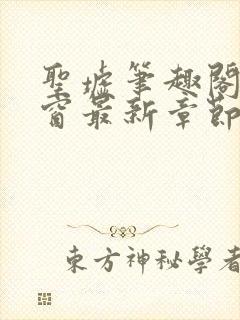 聖墟筆趣閣
窗最新章節
東方神秘學者